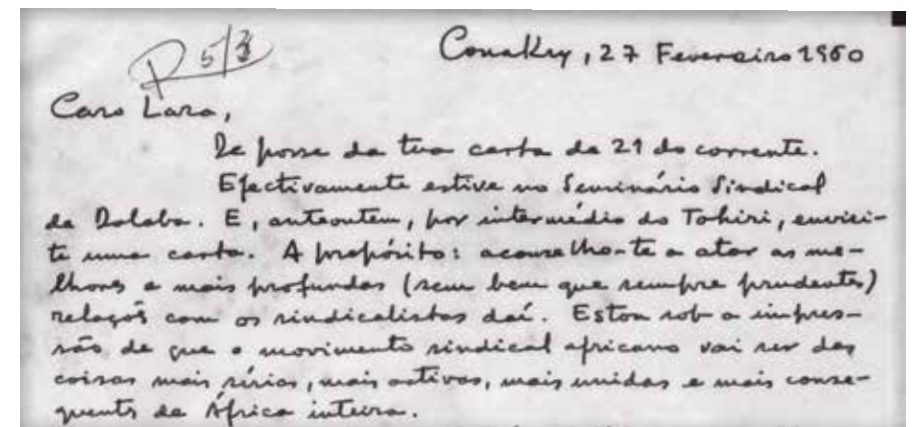 R 5/3
Conakry, 27 Fevereiro 1960
Caro Lara,
De posse da tua carta de 21 do corrente.
Efectivamente estive no Seminário Sindical
de Dalaba. E, anteontem, por intermédio do Tchiri, enviei-
te uma carta. A propósito: aconselho-te a atar as me-
lhores e mais profundas (sem bem que sempre prudentes)
relações com os sindicalistas daí. Estou sob a impres-
são de que o movimento sindical africano vai ser das
coisas mais sérias, mais activas, mais unidas e mais conse-
quents de África inteira.